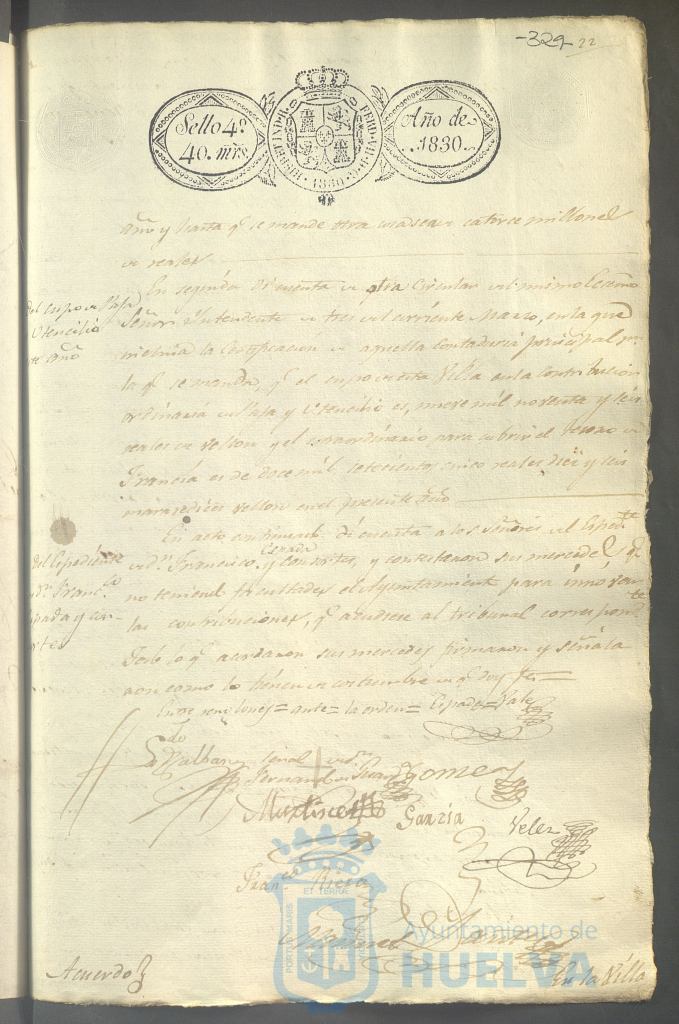 -329- 22
Sello 4º
40. mrs.
HISP. ET IND. R. FERD. VII. D. G.
1830
Año de
1830.
año y hasta qe. se mande otra cosa sean catorce millones
de reales
En seguida di cuenta de otra Circular del mismo Exsmo
Señor Yntendente de tres del corriente Marzo, en la que
la Certificacion de aquella Contaduria principal
la qe. se manda, qe. el cupo de esta Villa en la Contribucion
ordinaria de Paja y Utencilio es, nueve mil noventa y seis
reales de vellon y el extraordinario para cubrir el Tesoro de
Francia es de doce mil setecientos, cinco reales diez y seis
maravedises vellon en el presente año
del cupo de Paja
Utencilio
este año
En acto continuado di cuenta a los señores del Expedte.
de Dn. Francisco Cerada y Consortes, y contestaron sus mercedes qe.
no teniend facultades el Ayuntamiento para innovar
las contribuciones, qe. acudiese al tribunal correspondte.
Todo lo qe. acordaron sus mercedes firmaron y señala
ron como lo tienen de costumbre de qe. doy fe =
del Expediente
de Dn. Franco.
y con-
rtes
Entre renglones = ante = la orden = Cerada = Vale
Ldo.
Señal de Dn.
Fernando
Gomez
Martinez
Garzia
Velez
Franco. Rioja
Manuel
Acuerdo
En la Villa
PORTUS MARIS ET TERRAE CUSTODIA
Ayuntamiento de
HUELVA